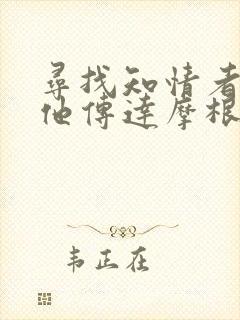 尋找知情者
他傳達摩根
韦正在